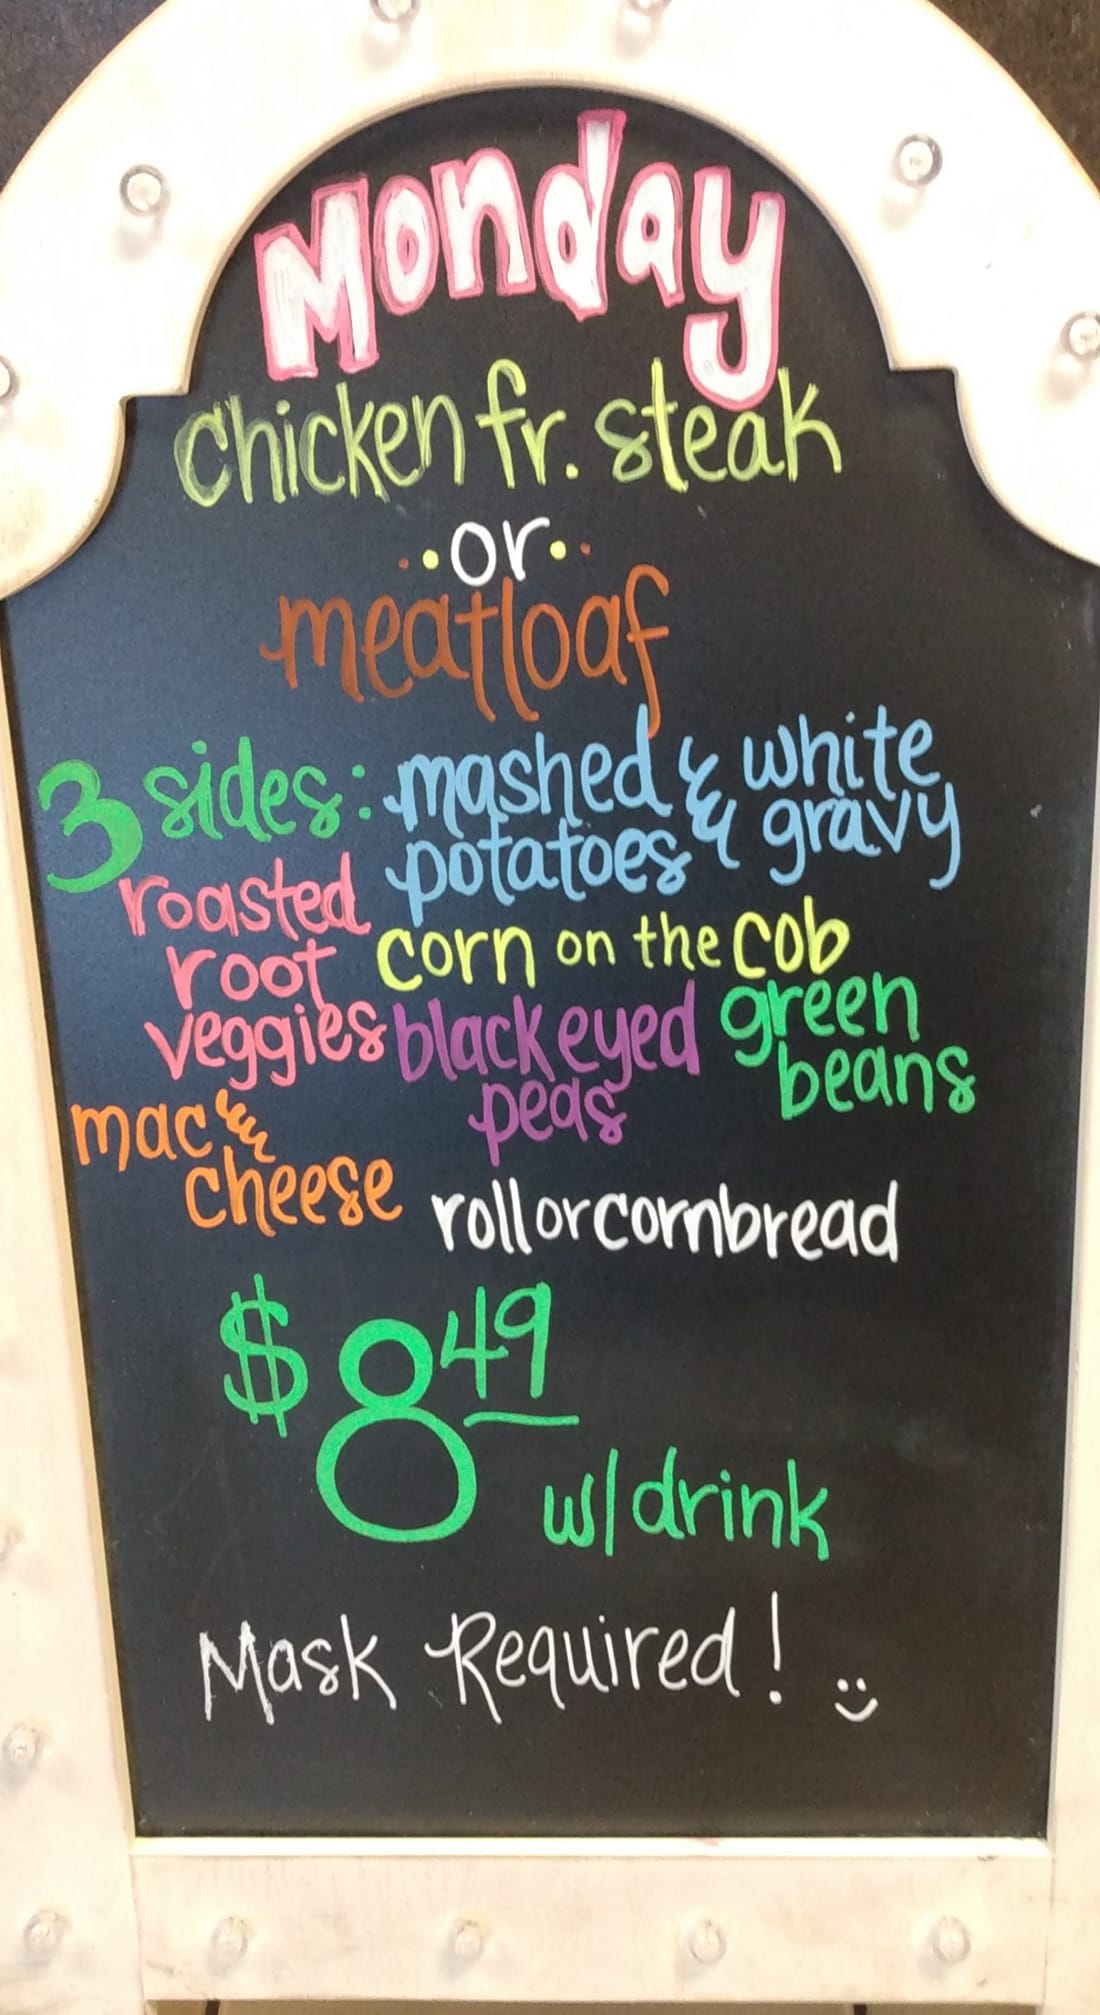 Monday
Chicken fr. steak
or
meatloaf
3 sides: mashed & white
potatoes & gravy
roasted
root
veggies
corn on the cob
black eyed
peas
green
beans
mac &
cheese
roll or cornbread
$8.49
w/drink
Mask Required!